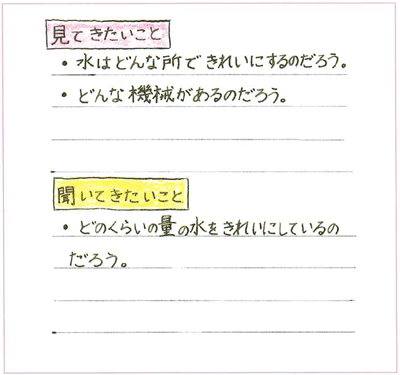 見てきたいこと
・水はどんな所できれいにするのだろう。
・どんな機械があるのだろう。
聞いてきたいこと
・どのくらいの量の水をきれいにしているの
だろう。